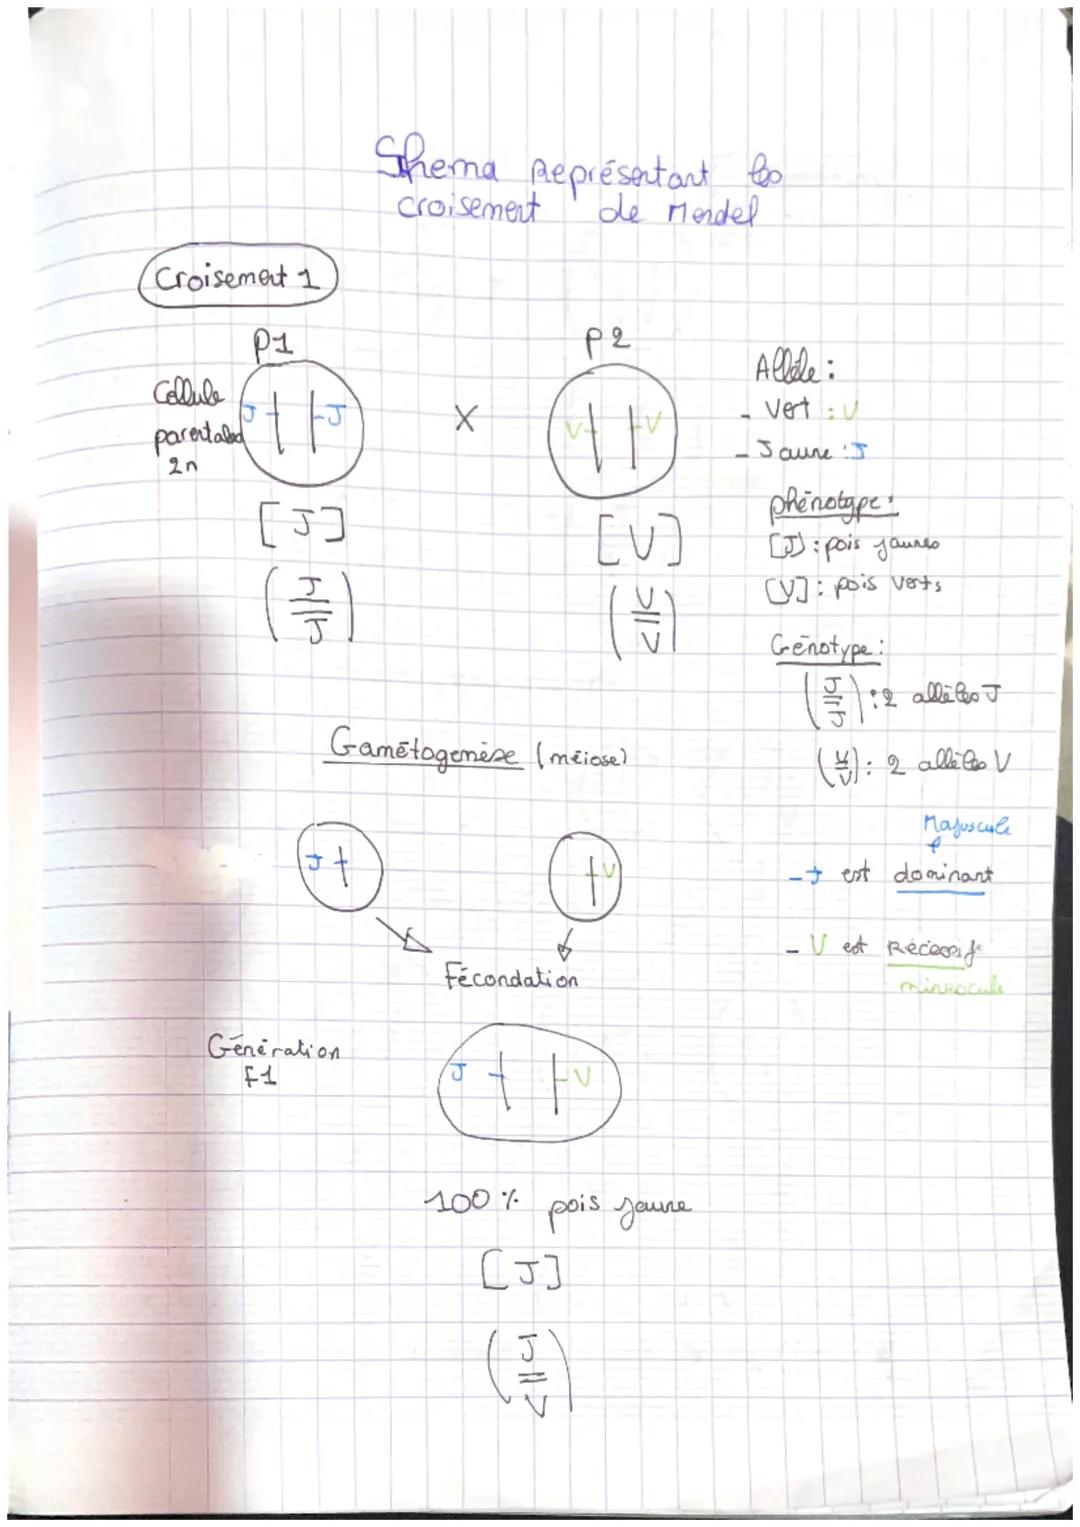 Shema Représentant les
croisement de Mendel
Croisement 1
P1
P2
Cellule
parentales
2n
J J
X
V V
[J]
[V]
(J/J)
(V/V)
Allèle :
- Vert : V
- Jaune : J
phénotype :
[J] : pois jaunes
[V] : pois verts
Génotype :
(J/J) : 2 allèles J
(V/V) : 2 allèles V
Gamétogenèse (méiose)
J
V
Majuscule
- J est dominant
- V est Récessif
minuscule
Fécondation
Génération
F1
J V
100 % pois jaune
[J]
(J/V)